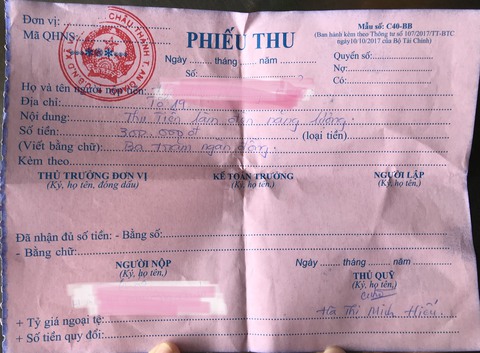 Đơn vị:
Mã QHNS:
Mẫu số: C40-BB
(Ban hành kèm theo Thông tư số 107/2017/TT-BTC
ngày 10/10/2017 của Bộ Tài Chính)
PHIẾU THU
Ngày ..... tháng ..... năm
Số:
Quyển số:
Nợ:
Có:
Họ và tên người nộp tiền:
Địa chỉ: Tổ 19
Nội dung: Thu Tiền làm đèn năng lượng
Số tiền: 300.000đ (loại tiền)
(Viết bằng chữ): Ba trăm ngàn đồng
Kèm theo
THỦ TRƯỞNG ĐƠN VỊ
(Ký, họ tên, đóng dấu)
KẾ TOÁN TRƯỞNG
(Ký, họ tên,)
NGƯỜI LẬP
(Ký, họ tên,)
Đã nhận đủ số tiền: - Bằng số:
- Bằng chữ:
Ngày ..... tháng ..... năm
NGƯỜI NỘP
(Ký, họ tên,)
THỦ QUỸ
(Ký, họ tên,)
Hà Thị Minh Hiếu
+ Tỷ giá ngoại tệ:
+ Số tiền quy đổi: